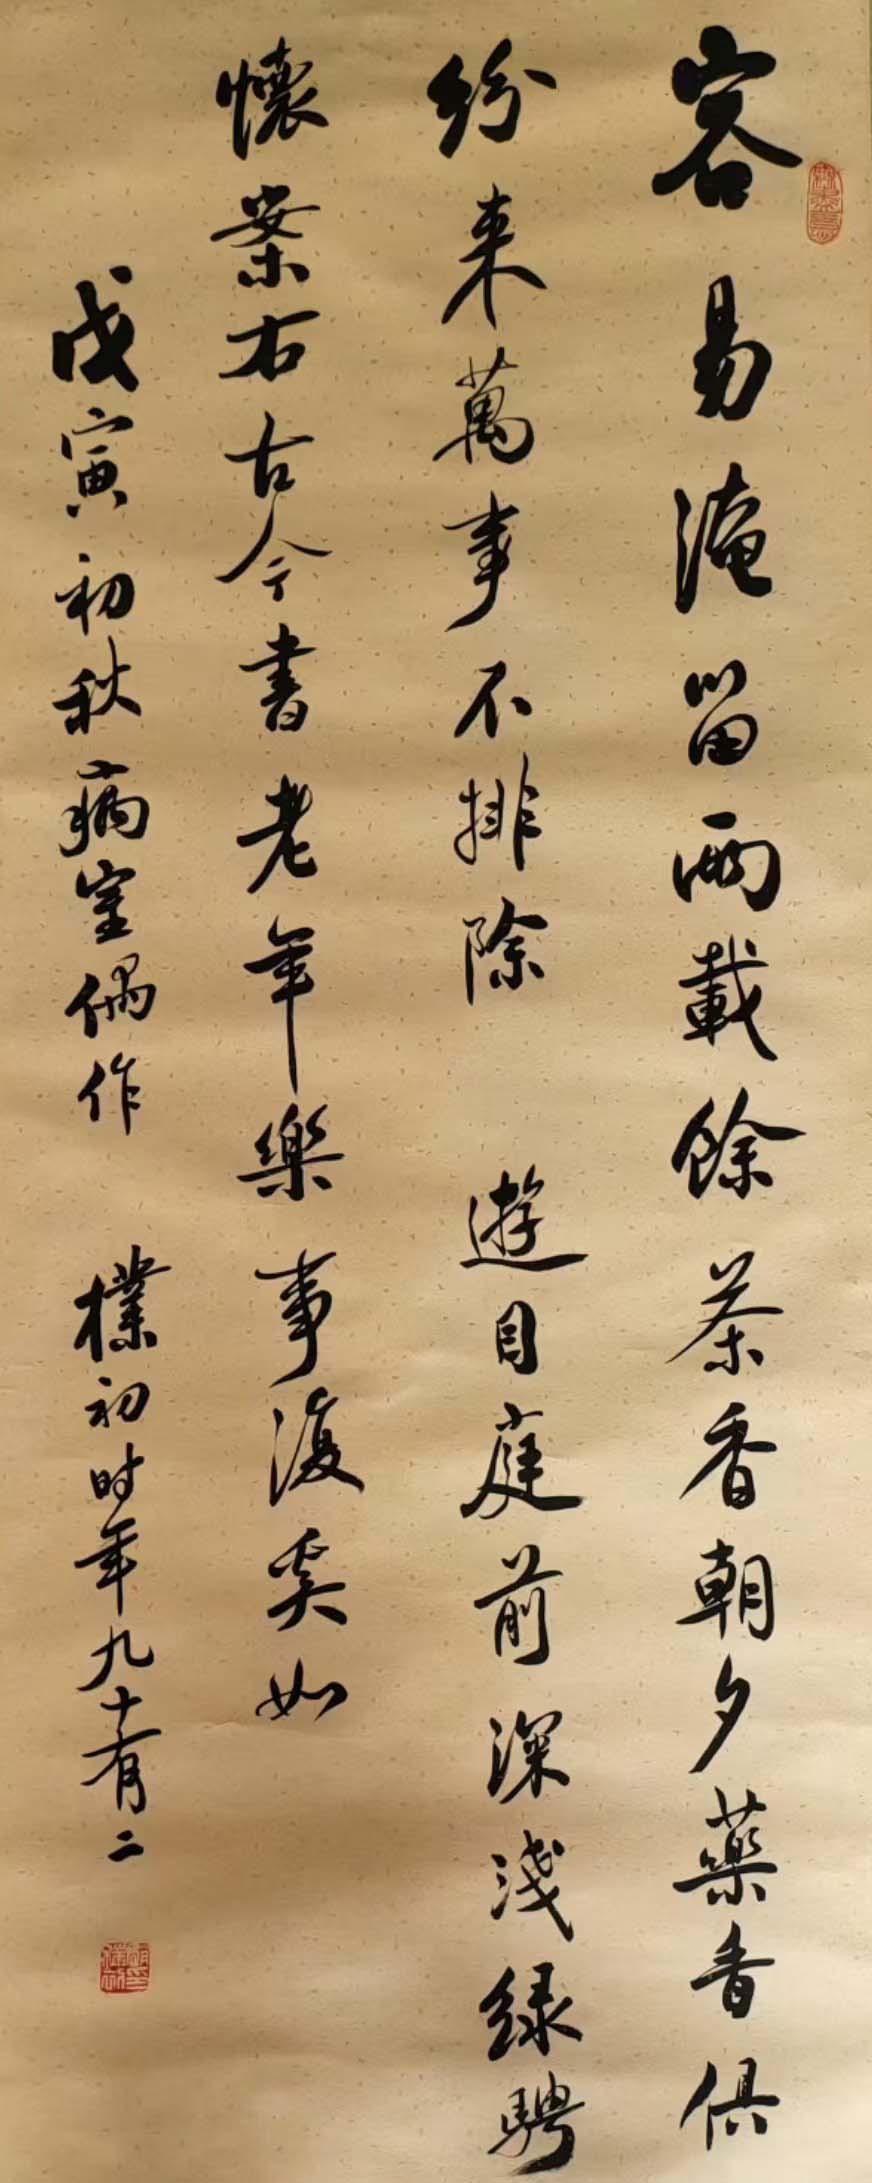 容易淹留兩載餘茶香朝夕藥香俱
紛来萬事不排除遊目庭前深淺緑騁
懷案右古今書老年樂事復奚如
戊寅初秋病室偶作樸初时年九十有二